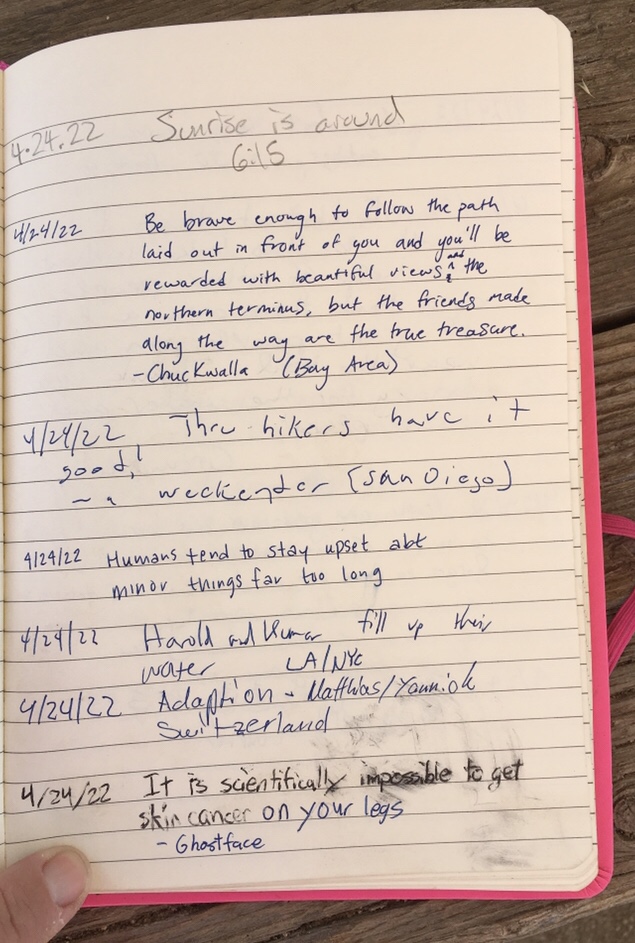 4.24.22 Sunrise is around
6:15
4/24/22 Be brave enough to follow the path
laid out in front of you and you'll be
rewarded with beautiful views, and the
northern terminus, but the friends made
along the way are the true treasure.
-Chuckwalla (Bay Area)
4/24/22, Thru hikers have it
good!
- a weekender (San Diego)
4/24/22 Humans tend to stay upset abt
minor things far too long
4/24/22 Harold and Kumar fill up their
water LA/NYC
4/24/22 Adaption - Matthias/Yannick
Switzerland
4/24/22 It is scientifically impossible to get
skin cancer on your legs
- Ghostface